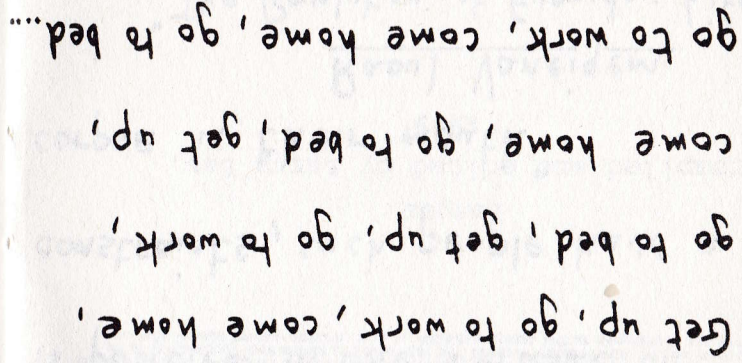 Get up, go to work, come home,
go to bed, get up, go to work,
come home, go to bed, get up,
go to work, come home, go to bed.....